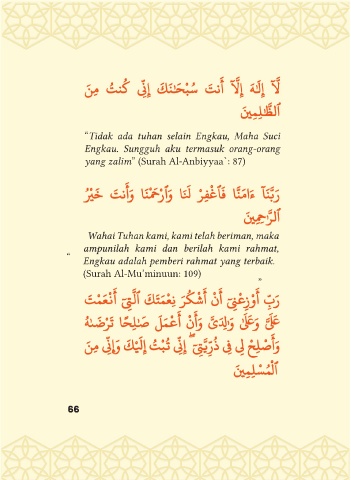 لَّآ إِلَـٰهَ إِلَّآ أَنتَ سُبْحَـٰنَكَ إِنِّى كُنتُ مِنَ
ٱلظَّـٰلِمِينَ
“Tidak ada tuhan selain Engkau, Maha Suci
Engkau. Sungguh aku termasuk orang-orang
yang zalim” (Surah Al-Anbiyyaa`: 87)
رَبَّنَآ ءَامَنَّا فَٱغْفِرْ لَنَا وَٱرْحَمْنَا وَأَنتَ خَيْرُ
ٱلرَّٰحِمِينَ
Wahai Tuhan kami, kami telah beriman, maka
ampunilah kami dan berilah kami rahmat,
“
Engkau adalah pemberi rahmat yang terbaik.
(Surah Al-Mu’minuun: 109)
”
رَبِّ أَوْزِعْنِىٓ أَنْ أَشْكُرَ نِعْمَتَكَ ٱلَّتِىٓ أَنْعَمْتَ
عَلَىَّ وَعَلَىٰ وَٰلِدَىَّ وَأَنْ أَعْمَلَ صَـٰلِحًا تَرْضَىٰهُ
وَأَصْلِحْ لِى فِى ذُرِّيَّتِىٓ ۖ إِنِّى تُبْتُ إِلَيْكَ وَإِنِّى مِنَ
ٱلْمُسْلِمِينَ
66